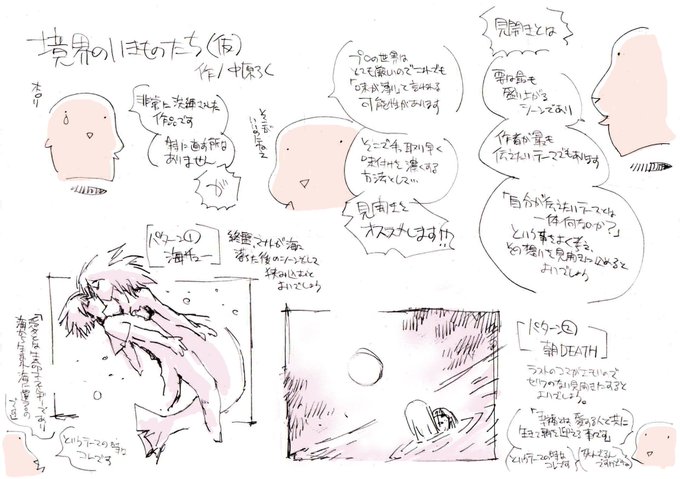 境界のいきものたち(仮)
作/中原ろく
ホロリ
非常に洗練された
作品です
特に直す所は
ありません
が
プロの世界は
とても厳しいのでコレでも
「味が薄い」と言われる
可能性があります
そこで手っ取り早く
味付けを濃くする
方法として…
見開きを
オススメします!!
見開きとは
要は最も
盛り上がる
シーンであり
作者が最も
伝えたいテーマでもあります
「自分が伝えたいテーマとは
一体何なのか?」
という事をよく考え、
その想いを見開きに込めると
よいでしょう
パターン①
海チュー
終盤、2人が海に
落ちた後のシーンとして
挟み込むと
よいでしょう
というテーマの時は
コレです
パターン②
朝DEATH
ラストのコマがさむいので
セリフのない見開きにすると
よいでしょう。
「幸福とは、愛する人と共に
生きて朝を迎える事です」
というテーマの時は
コレです